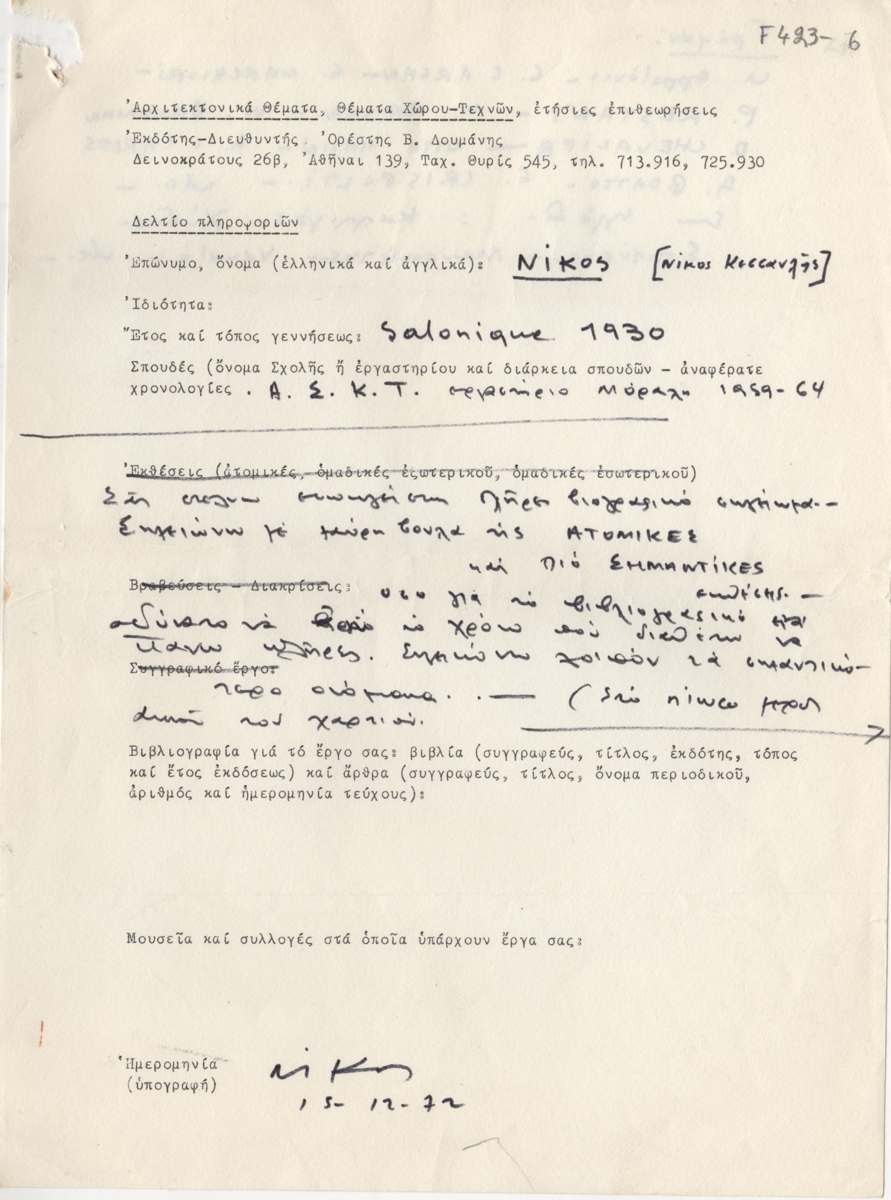 F423- 6
'Αρχιτεκτονικά Θέματα, Θέματα Χώρου-Τεχνῶν, ἐτήσιες ἐπιθεωρήσεις
'Εκδότης-Διευθυντής 'Ορέστης Β. Δουμάνης
Δεινοκράτους 26β, 'Αθῆναι 139, Ταχ. Θυρίς 545, τηλ. 713.916, 725.930
Δελτίο πληροφοριῶν
'Επώνυμο, ὄνομα (ἑλληνικά καί ἀγγλικά): Νίκος [Νίκος Κεσσανλῆς]
'Ιδιότητα:
Ἔτος καί τόπος γεννήσεως: Salonique 1930
Σπουδές (ὄνομα Σχολῆς ἤ ἐργαστηρίου καί διάρκεια σπουδῶν - ἀναφέρατε
χρονολογίες . Α. Σ. Κ. Τ. εργαστήριο Μόραλη 1959-64
'Εκθέσεις (ἀτομικές, ὁμαδικές ἐξωτερικοῦ, ὁμαδικές ἐσωτερικοῦ)
Σᾶς στέλνω πλῆρες βιογραφικό σημείωμα.-
Σημειώνω μέ μαύρη βούλα τίς ΑΤΟΜΙΚΕΣ
καί πιό ΣΗΜΑΝΤΙΚΕΣ
ἐκθέσεις. -
Βραβεύσεις - Διακρίσεις: οσο γιά το βιβλιογραφικό
αδύνατο νά το χρόνο πού διαθέτω νά
κάνω πλῆρες. Σημειώνω λοιπόν τά σημαντικό-
Συγγραφικό ἔργο:
τερα ονόματα. . — (Στό πίσω μέρος
αυτοῦ τοῦ χαρτιοῦ.
Βιβλιογραφία γιά τό ἔργο σας: βιβλία (συγγραφεύς, τίτλος, ἐκδότης, τόπος
καί ἔτος ἐκδόσεως) καί ἄρθρα (συγγραφεύς, τίτλος, ὄνομα περιοδικοῦ,
ἀριθμός καί ἡμερομηνία τεύχους):
Μουσεῖα καί συλλογές στά ὁποῖα ὑπάρχουν ἔργα σας:
Ἡμερομηνία
(ὑπογραφή)
Νίκος
15-12-72